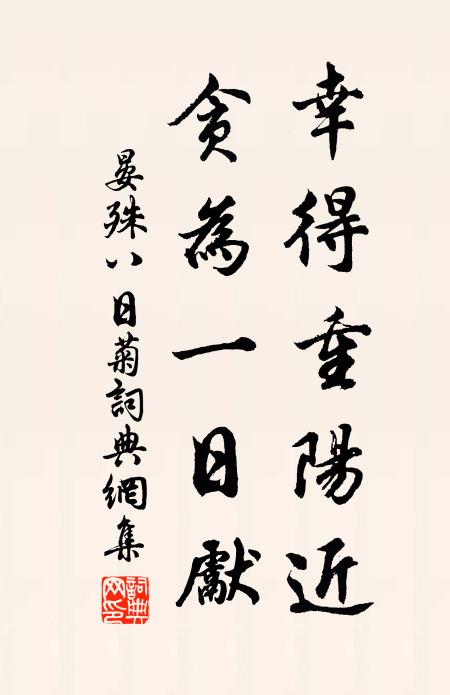 幸得重陽近
貪為一日獻
晏殊八日菊詞典網集
詞典
网印